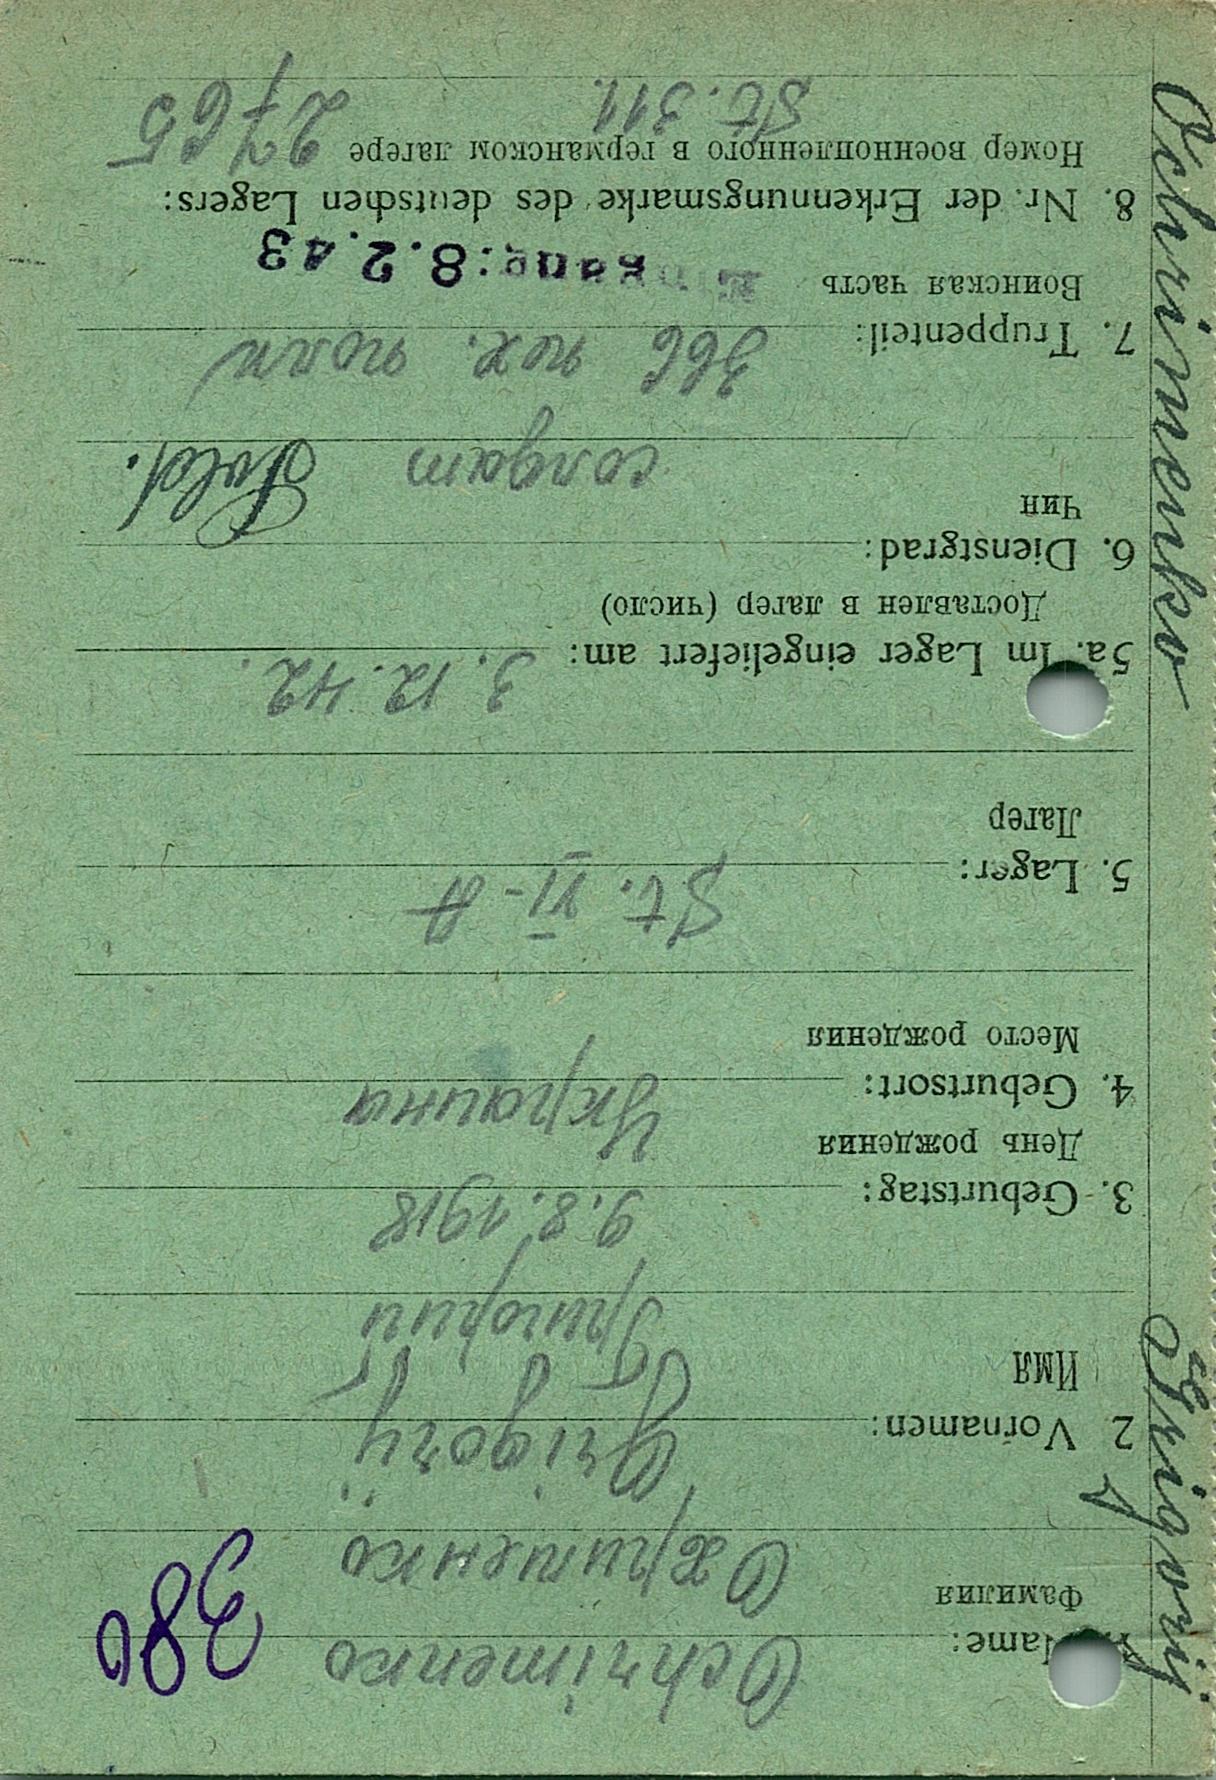 Ochrimenko Grigorij
1. Name: Ochrimenko
Фамилия Охрименко
380
2 Vornamen: Grigorÿ
Имя Григорий
3. Geburtstag: 9.8.1918
День рождения
4. Geburtsort: Украина
Место рождения
5. Lager: St. VI-A
Лагер
5a. Im Lager eingeliefert am: 3.12.42.
Доставлен в лагер (число)
6. Dienstgrad: Sold.
Чин солдат
7. Truppenteil: 366 пех. полк
Воинская часть
8.2.43
8. Nr. der Erkennungsmarke des deutschen Lagers:
Номер военнопленного в германском лагере 2765
St. 311.